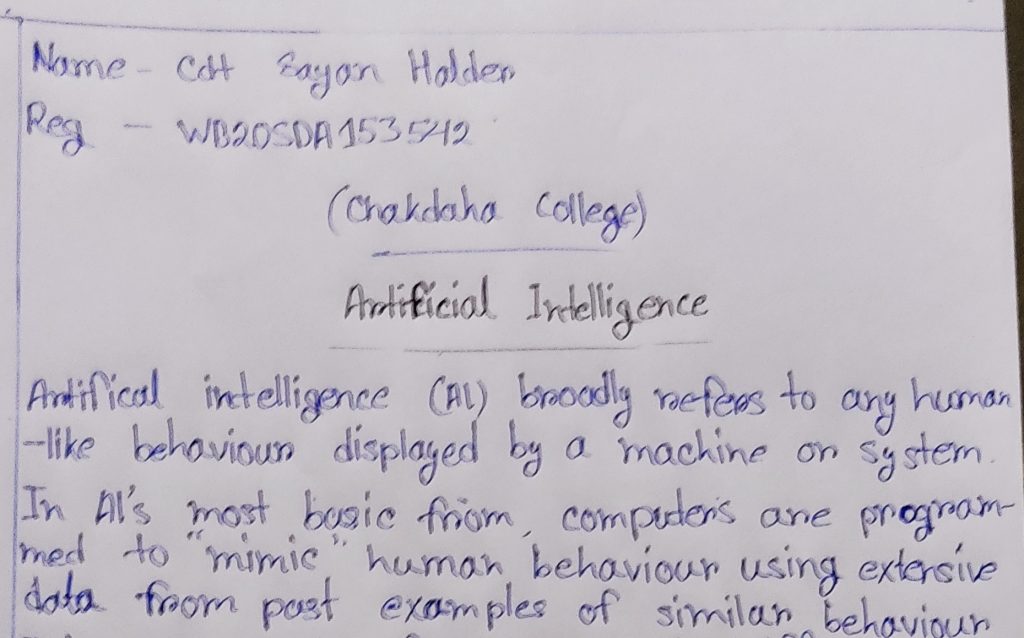 Name - Cdt Sayan Halder
Reg - WB20SDA153542
(Chakdaha College)
Artificial Intelligence
Artifical intelligence (AI) broadly refers to any human
-like behaviour displayed by a machine or system.
In AI's most basic from, computers are program-
med to "mimic" human behaviour using extersive
data from past examples of similar behaviour